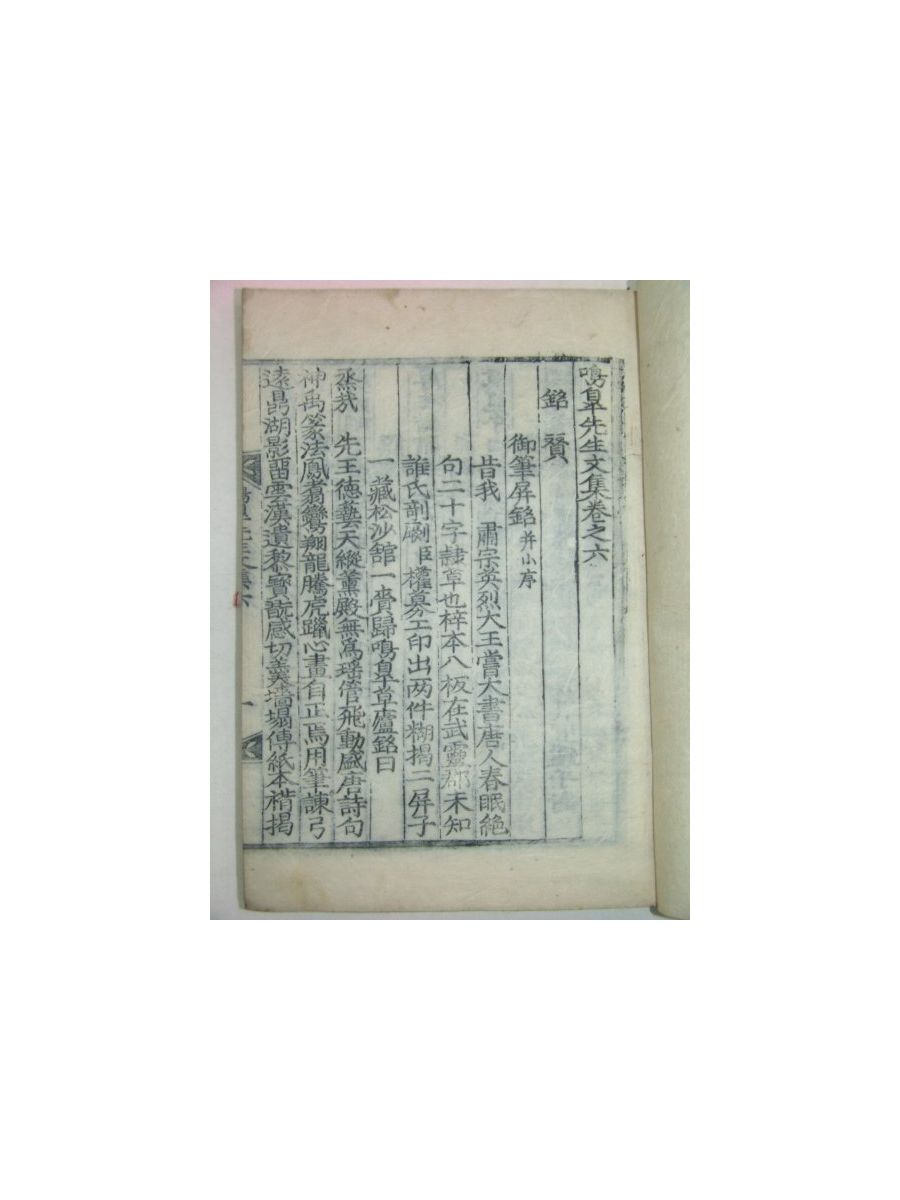 鳴皐先生文集卷之六
銘 贊
御筆屏銘 并小序
昔我 肅宗英烈大王嘗大書唐人春眠絶
句二十字隷草也梓本八板在武靈郡未知
誰氏剞劂臣權募工印出两件糊揭二屏子
一藏松沙舘一賚歸鳴皐草廬銘曰
烝㢤 先王德藝天縱薰殿無爲瑶管飛動盛唐詩句
神禹篆法鳳翥鸞翔龍騰虎躐心畫自正焉用筆諫弓
遠鼎湖影留雲漢遺黎寳翫感切羹墻塌傳紙本褙揭